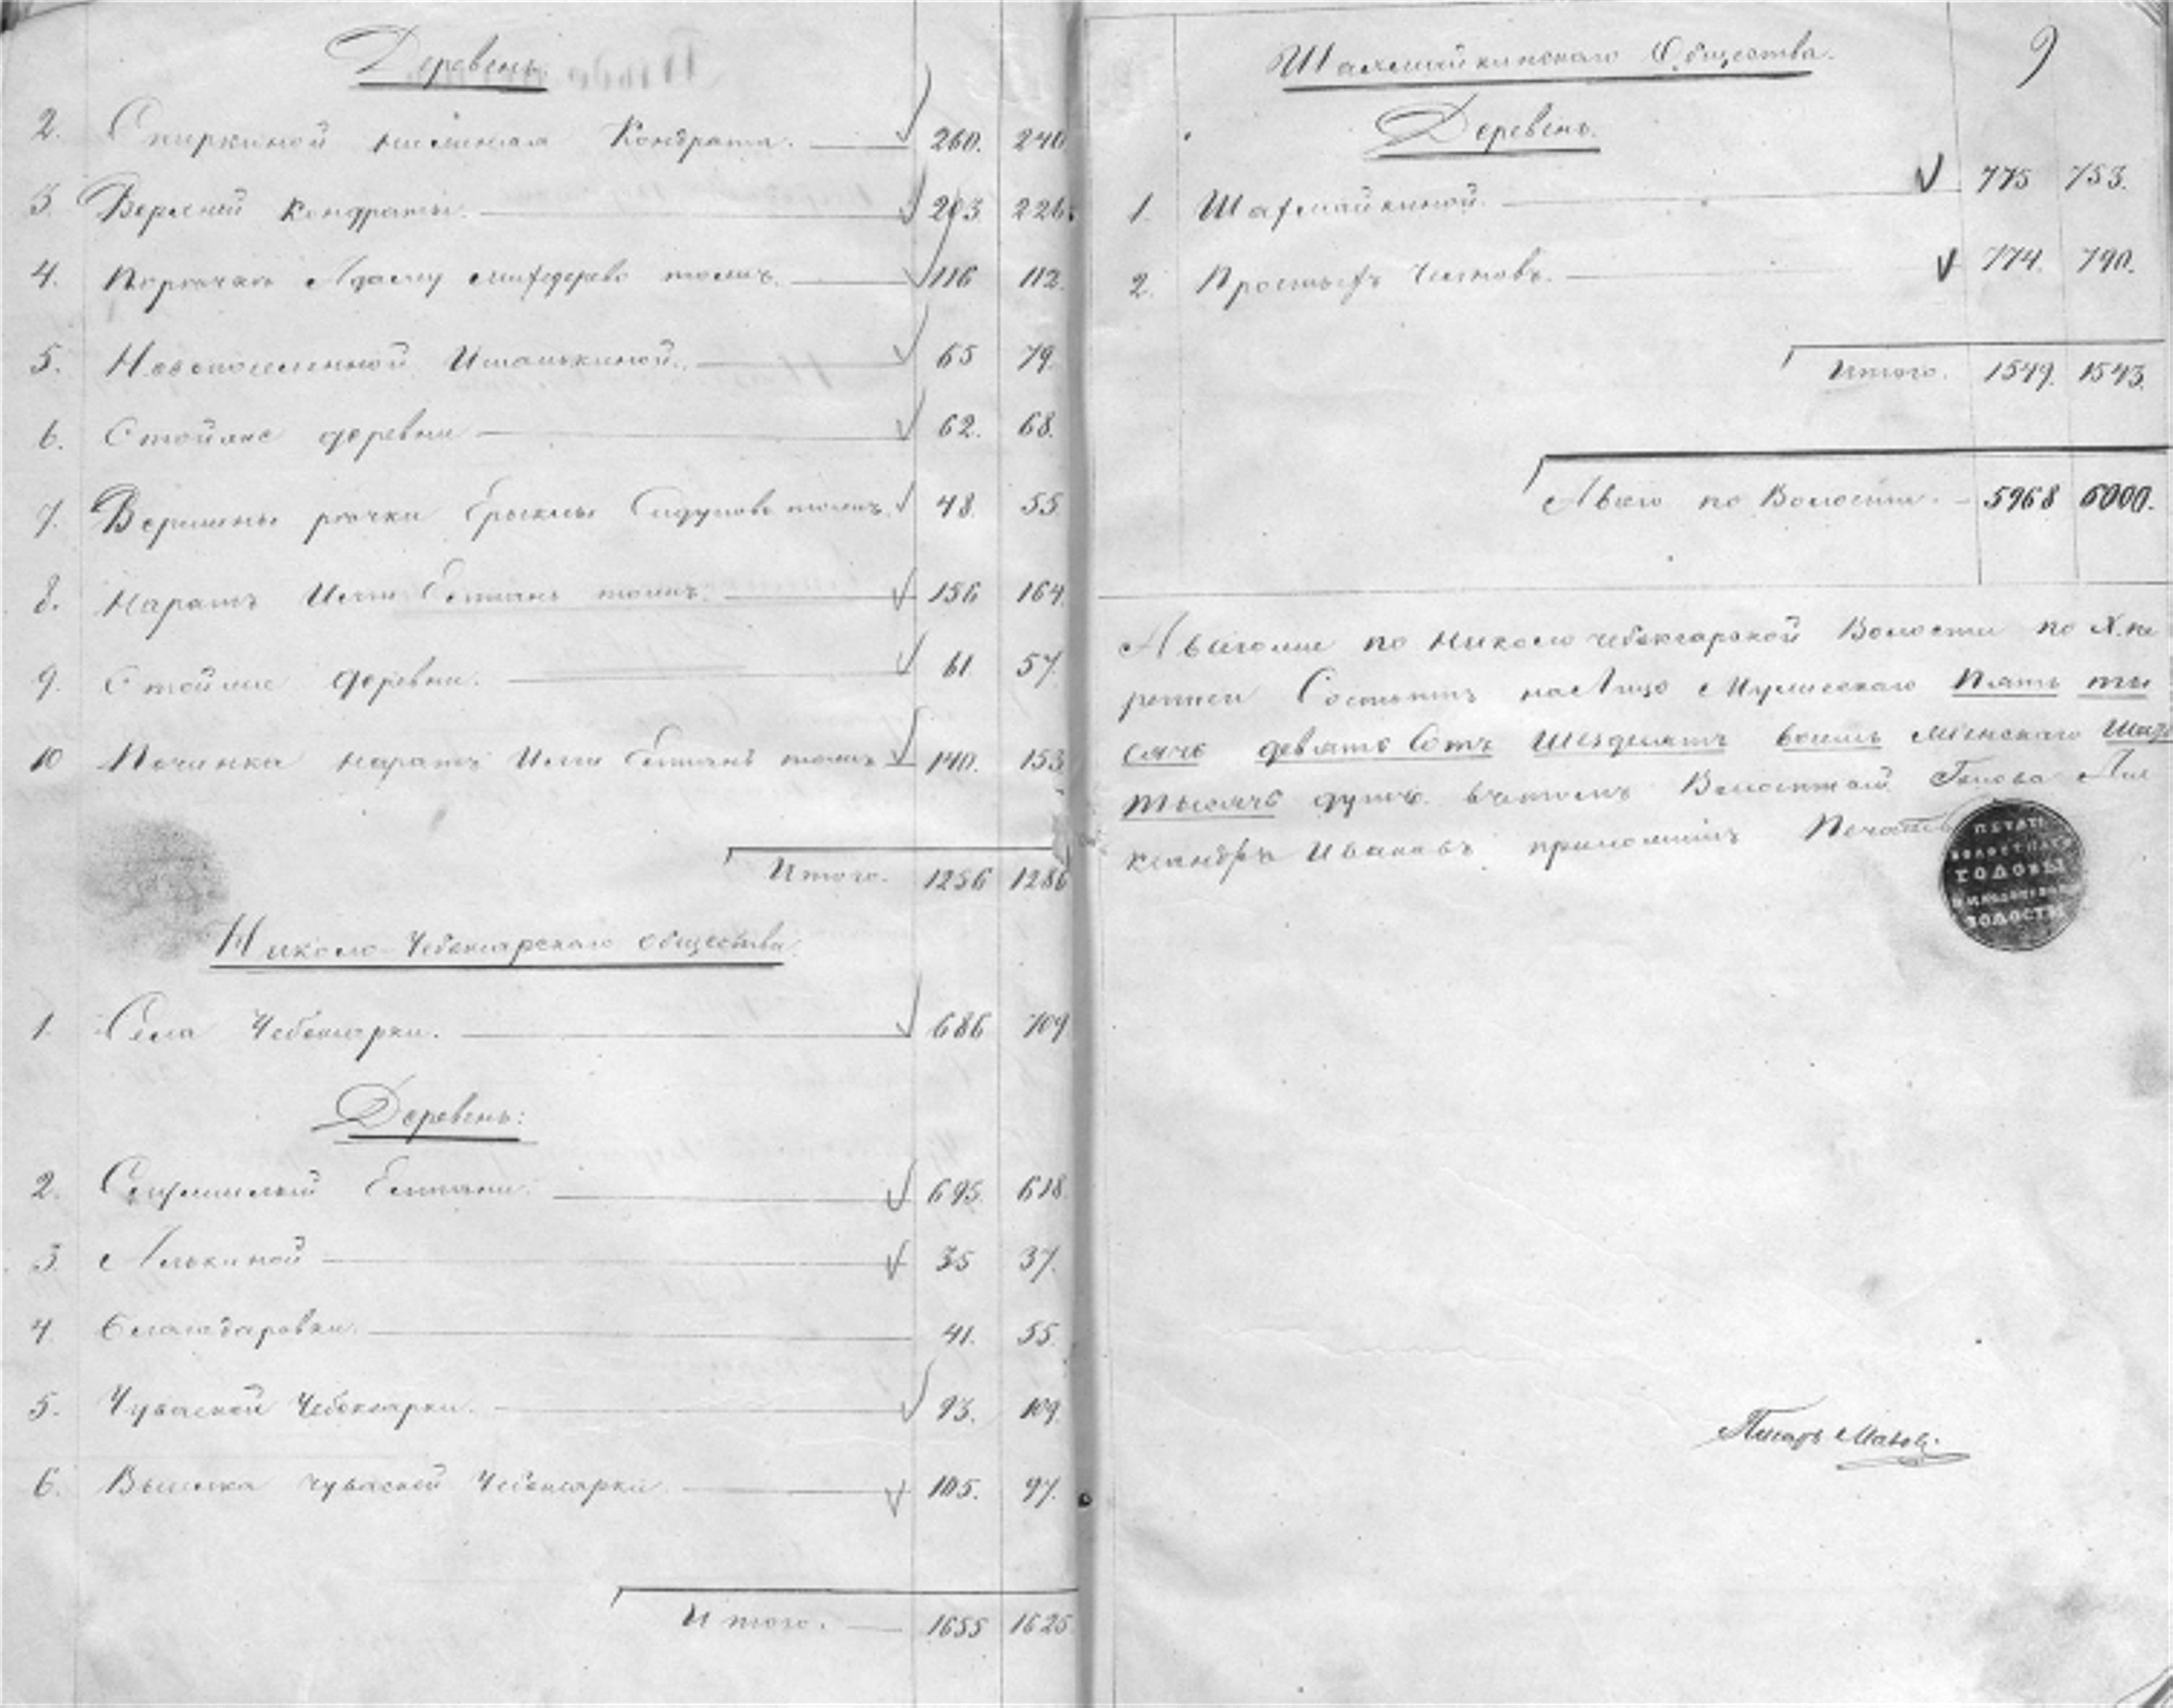 Деревень.
2. Спиркиной нисменная Кондрата. 260. 240
3 Верхней Кондраты. 203. 226.
4. Порючан Адаму тожъ. 116 112.
5. Новопоселенной Иштанькиной. 65 79.
6. Стойлже деревни 62. 68.
7. Вершины речки Ерыклы Сидулова тожъ. 48. 55
8. Наратъ Илги Ептань тожъ. 156 164
9. Стойлже деревни. 61. 57.
10 Починка Наратъ Илги Ептань тожъ 140. 153
Итого. 1256 1286
Николо-Чебоксарскаго общества
1. Села Чебоксарки. 686 709
Деревень:
2. Ептани. 695. 618
3. Алькиной 35 37.
4. Благодаровки. 41. 55.
5. Чуваской Чебоксарки. 93. 109.
6. Выселка чуваской Чебоксарки. 105. 97.
Итого. 1655 1625
9
Шахмайкинскаго Общества.
Деревень.
1. Шахмайкиной. 775 753.
2. Простыхъ Челновъ. 774. 790.
Итого. 1549. 1543.
А всего по Волости. 5968 6000.
А всего по Николо чебоксарской Волости по X. пе
реписи Состоитъ на Лицо Мужескаго Пять ты
сячь девять Сотъ Шездесятъ восемь женскаго Шесть
тысячь душъ. вчемъ Волостной Голова Але
ксандръ Ивановъ приложилъ Печать
ПЕЧАТЬ
ВОЛОСТНАГО
ГОЛОВЫ
ВОЛОСТИ
Писарь